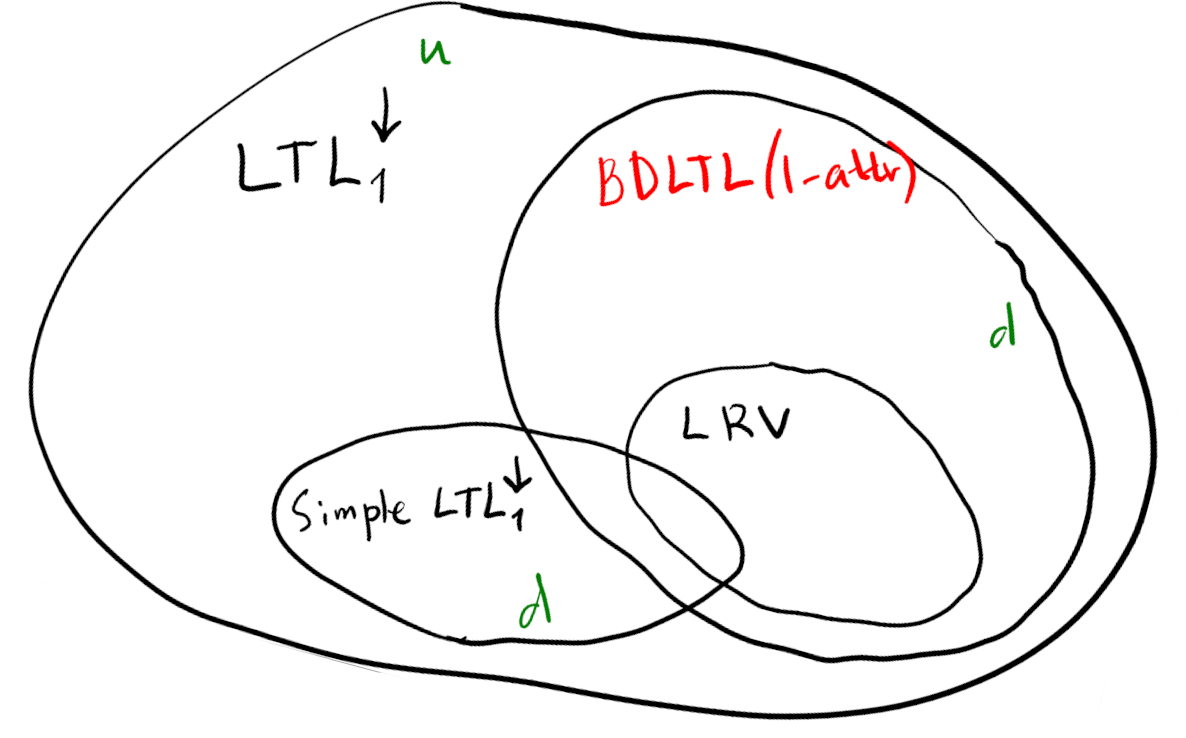 u
LTL₁↓
BDLTL(1-attr)
d
LRV
Simple LTL₁↓
d